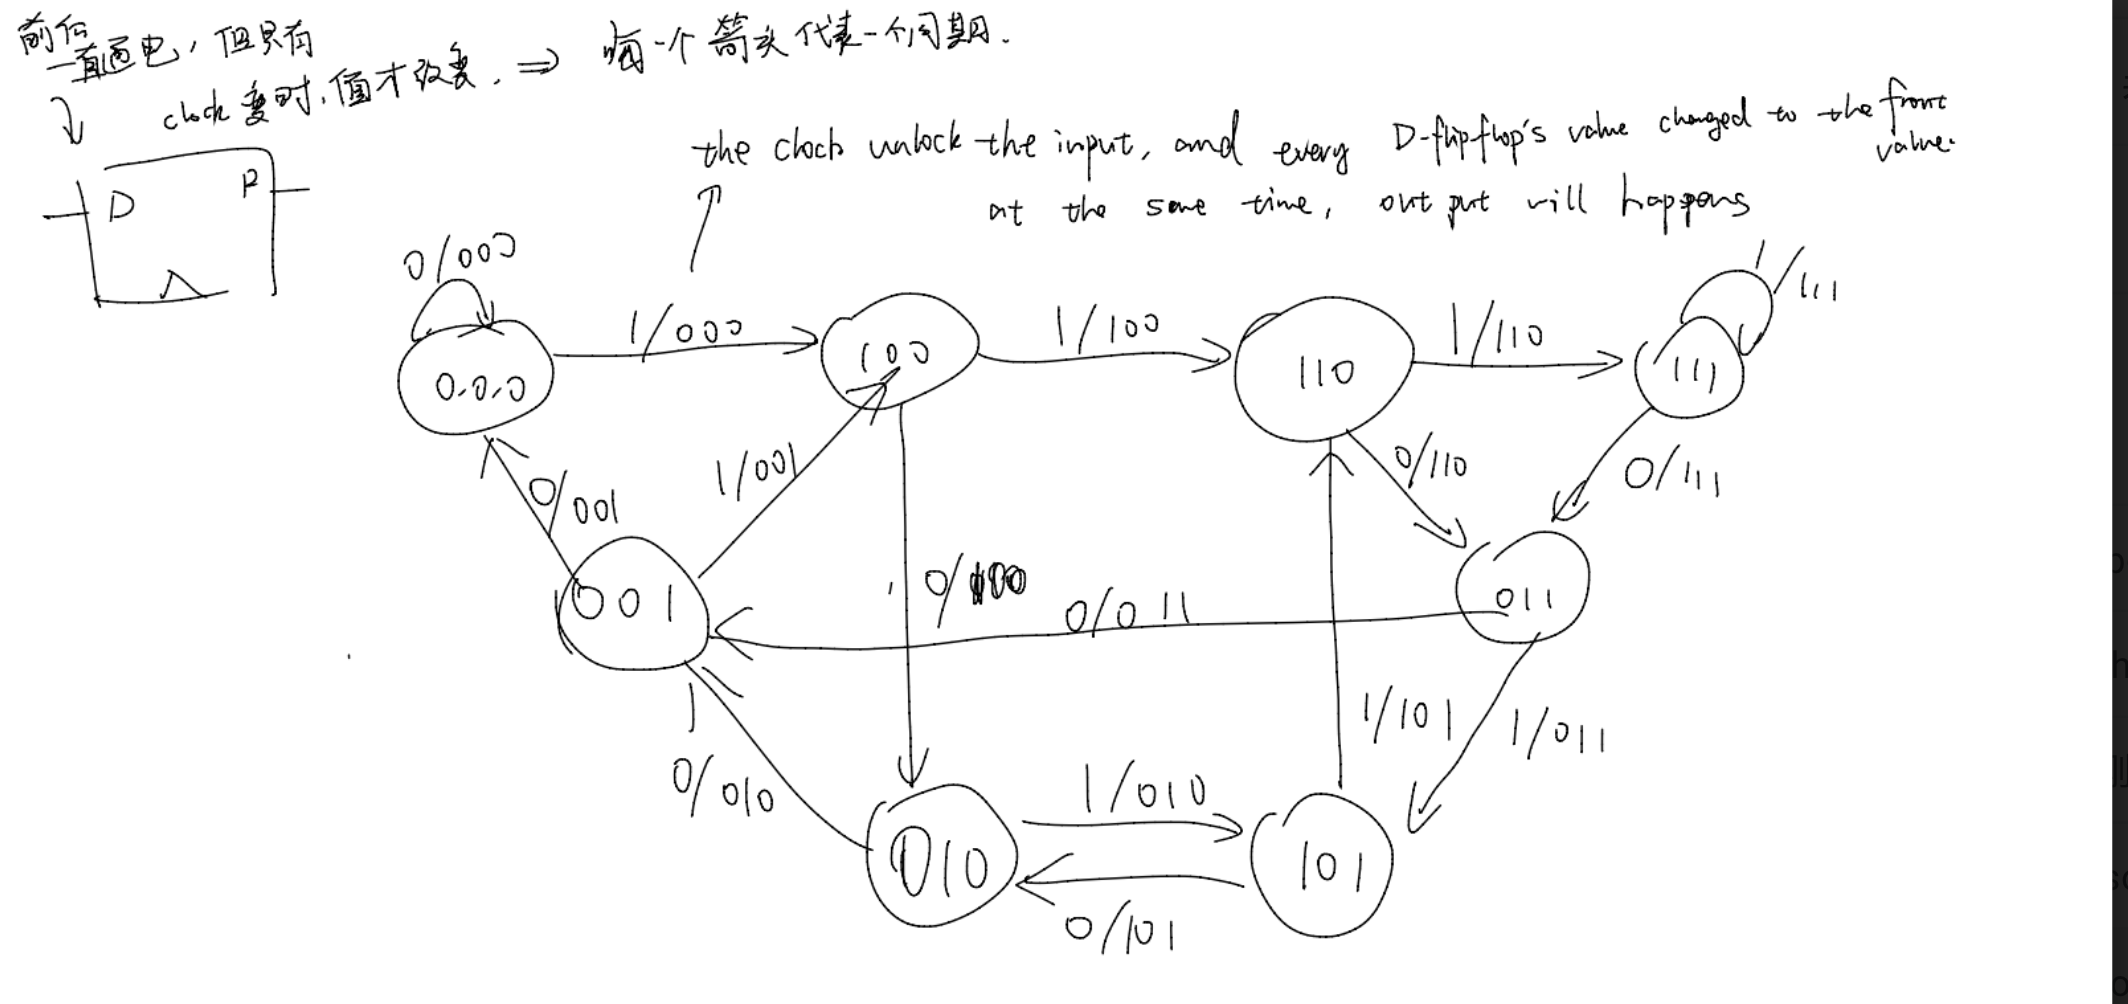 前后
一直通电，但只有
clock 变时，值才改变. ⇒ 每一个箭头代表一个周期.
the clock unlock the input, and every D-flipflop's value changed to the front
value.
at the same time, output will happens
D
0/000
1/000
1/100
1/110
1/111
0.0.0
100
110
111
0/001
1/001
0/110
0/111
001
0/100
0/011
011
0/010
1/010
1/101
1/011
010
101
0/101